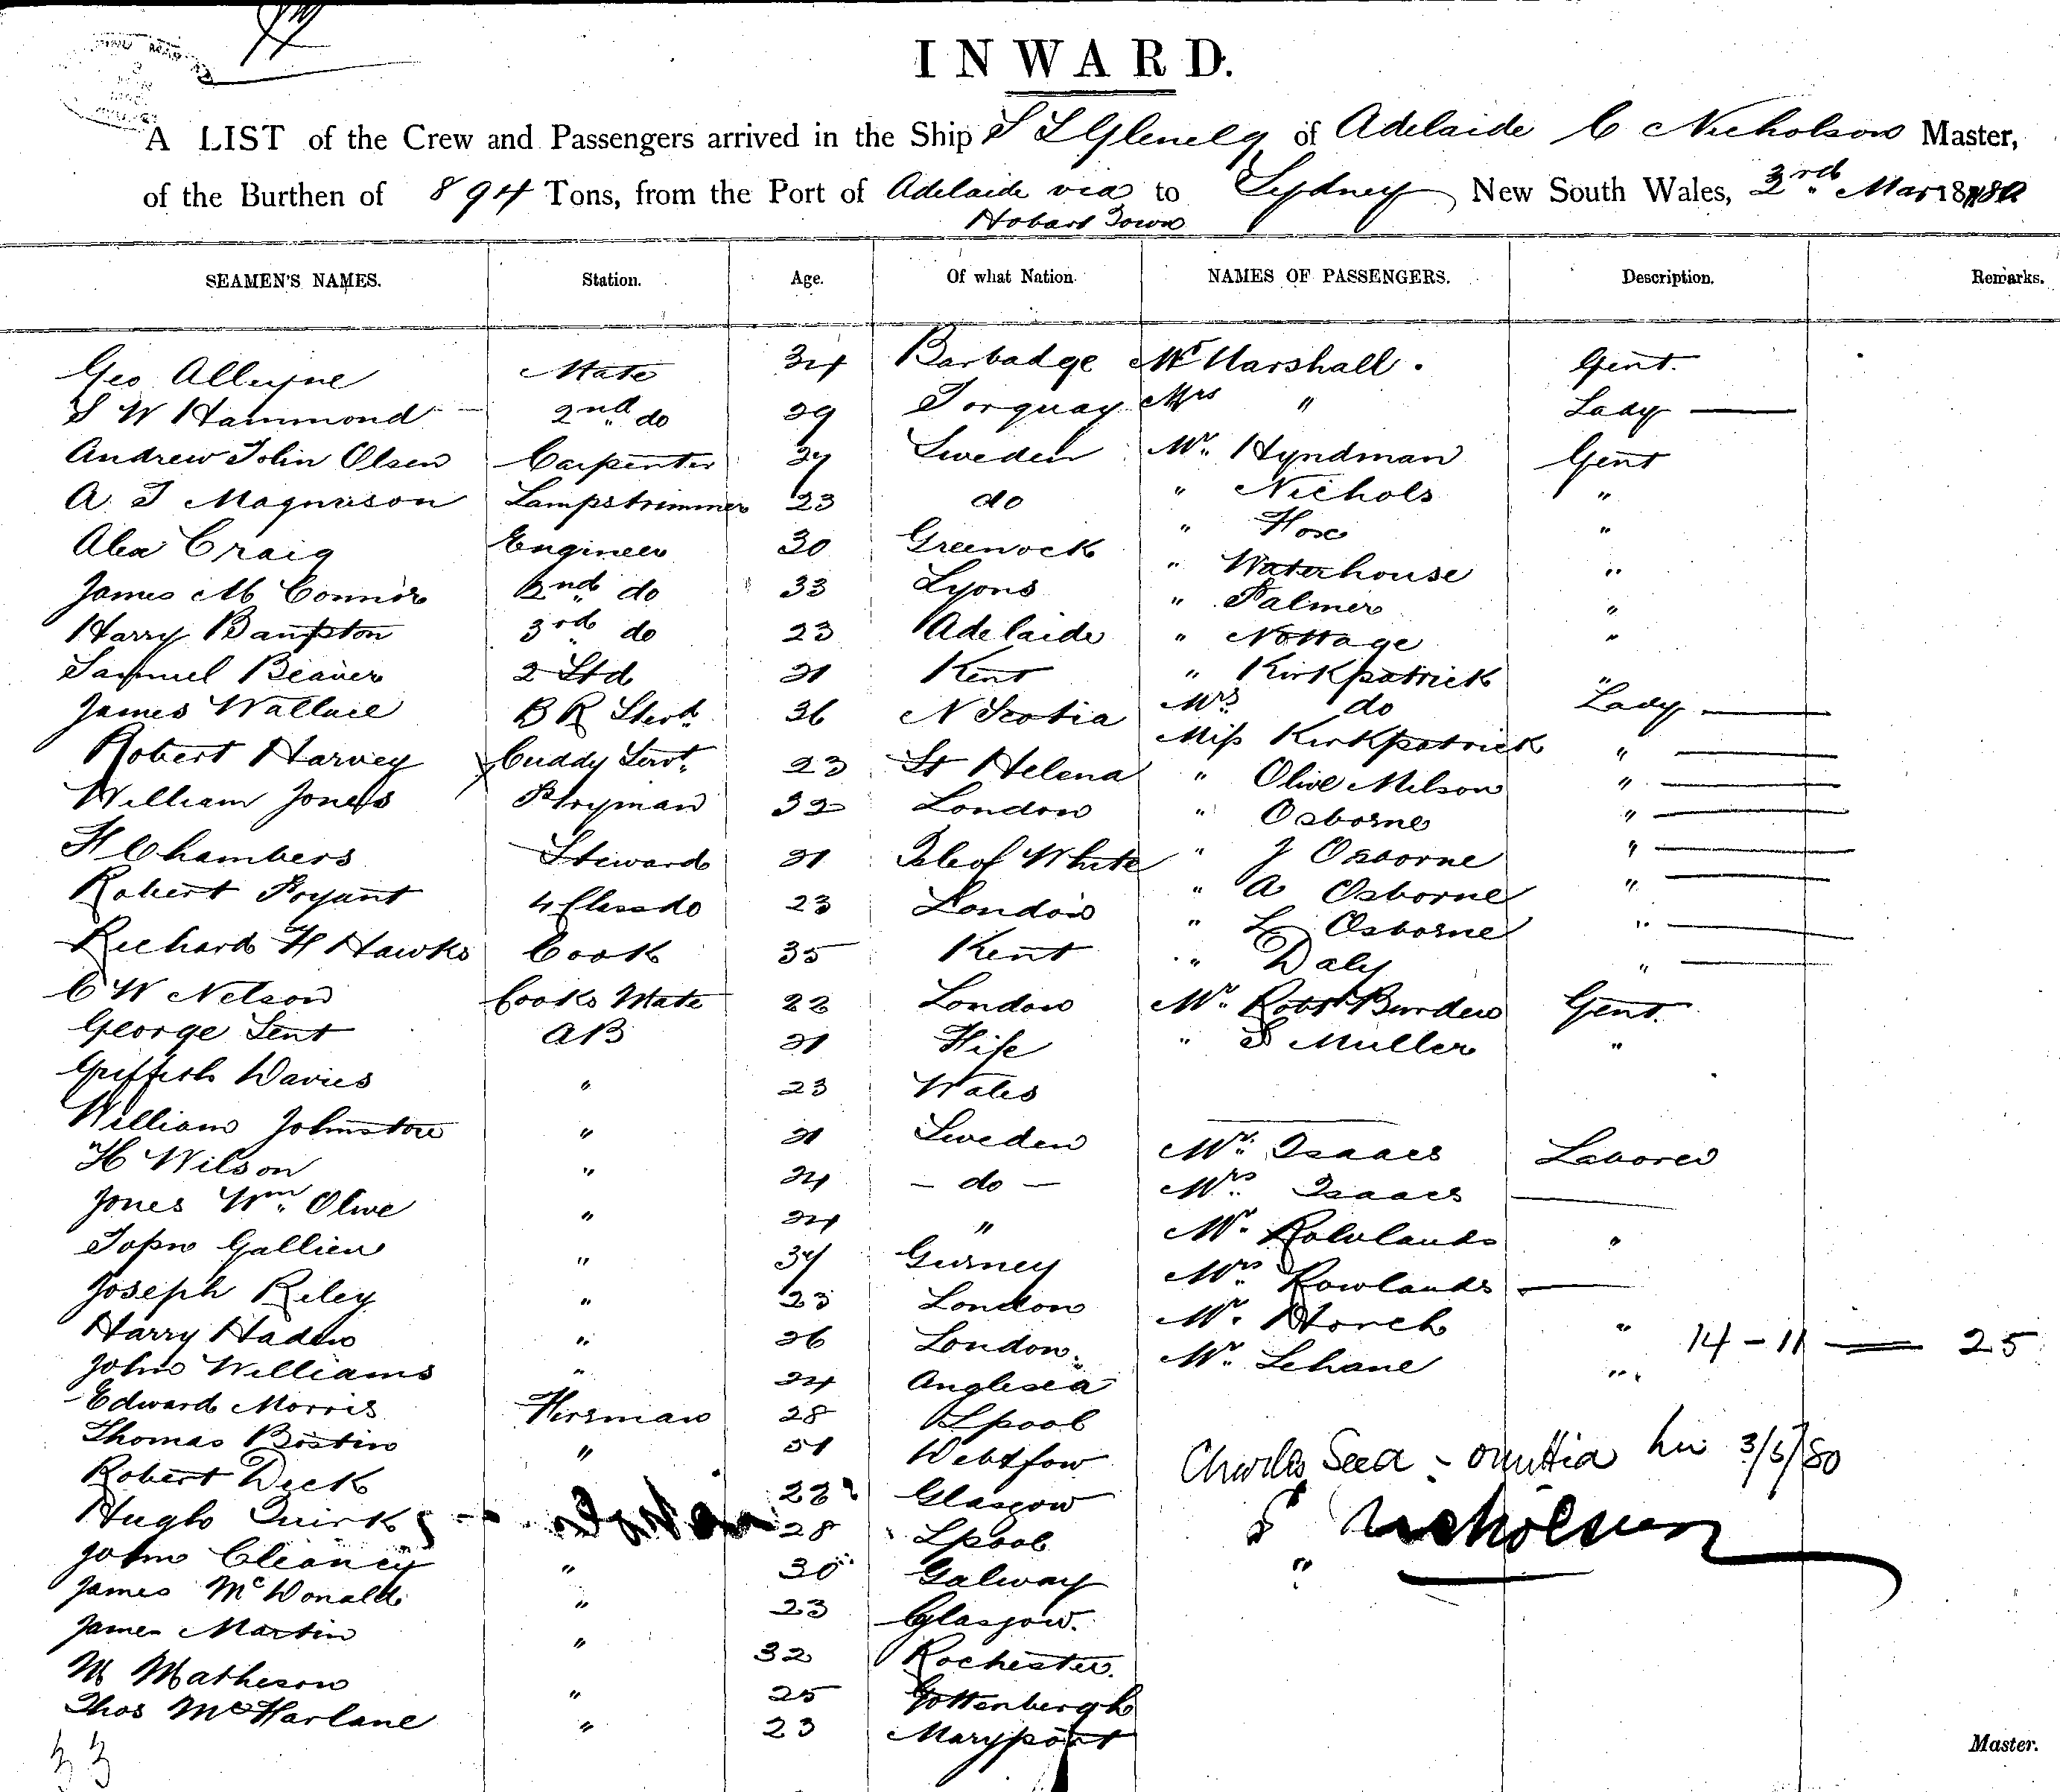 INWARD.
A LIST of the Crew and Passengers arrived in the Ship S S Glenelg of Adelaide C Nicholson Master,
of the Burthen of 894 Tons, from the Port of Adelaide via to Sydney New South Wales, 3rd Mar 1880
Hobart Town
SEAMEN'S NAMES. Station. Age. Of what Nation. NAMES OF PASSENGERS. Description. Remarks.
Geo Alleyne Mate 34 Barbadge Mr Marshall. Gent.
S W Hammond 2nd do 29 Torquay Mrs " Lady
Andrew John Olsen Carpenter Sweden Mr. Hyndman Gent
A. T Magnuson Lampstrimmer 23 do " Nichols "
Alex Craig Engineer 30 Greenock " "
James Mc Connor 2nd do 33 Lyons " Waterhouse "
Harry Bampton 3rd do 23 Adelaide " Palmer "
Samuel Beaver 2 Std 21 Kent " Nottage "
James Wallace B R Stewd. 36 N Scotia " Kirkpatrick "
Robert Harvey Cuddy Servt. 23 St Helena Mrs do Lady
William Jones P'tryman 32 London Miss Kirkpatrick "
H Chambers Steward 21 Isle of White " Olive Milson "
Robert Pryant 4 Class do 23 London " Osborne "
Richard H Hawks Cook 35 Kent " J Osborne "
C W Nelson Cooks Mate 22 London " A Osborne "
George Sent AB 21 Fife " L Osborne "
Griffith Davies " 23 Wales " Daly "
William Johnstone " 21 Sweden Mr. Robt Burden Gent.
H Wilson " 24 - do - " S Muller "
Jones Wm. Olive " 24 " Mr. Isaacs Laborer
John Gallien " Gurney Mrs. Isaacs
Joseph Riley " 23 London Mr. Rowlands "
Harry Haden " 26 London. Mrs. Rowlands
John Williams " 24 Anglesea Mr. Horch "
Edward Morris Firsman 28 Lpool Mr. Lehane " 14 - 11 — 25
Thomas Bostin "
Robert Dick 22 Glasgow Charles Seed - 3/3/80
Hugh Quirk 28 Lpool Nicholson
John Cleancy " 30 Galway "
James McDonald " 23 Glasgow.
James Martin " 32 Rochester.
M Matheson " 25 Gottenbergh
Thos McFarlane " 23 Marypoart
33
Master.